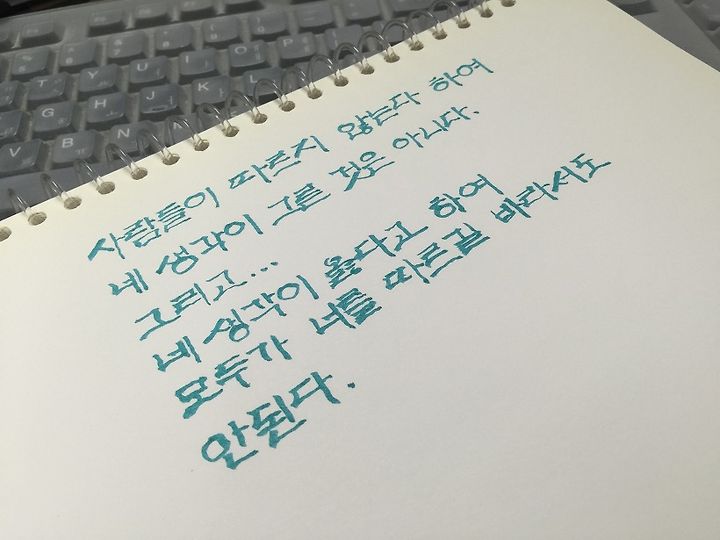 사람들이 따르지 않는다 하여
네 생각이 그른 것은 아니다.
그리고...
네 생각이 옳다고 하여
모두가 너를 따르길 바라서도
안된다.
T Y U I O P
G H J K L
V B N M